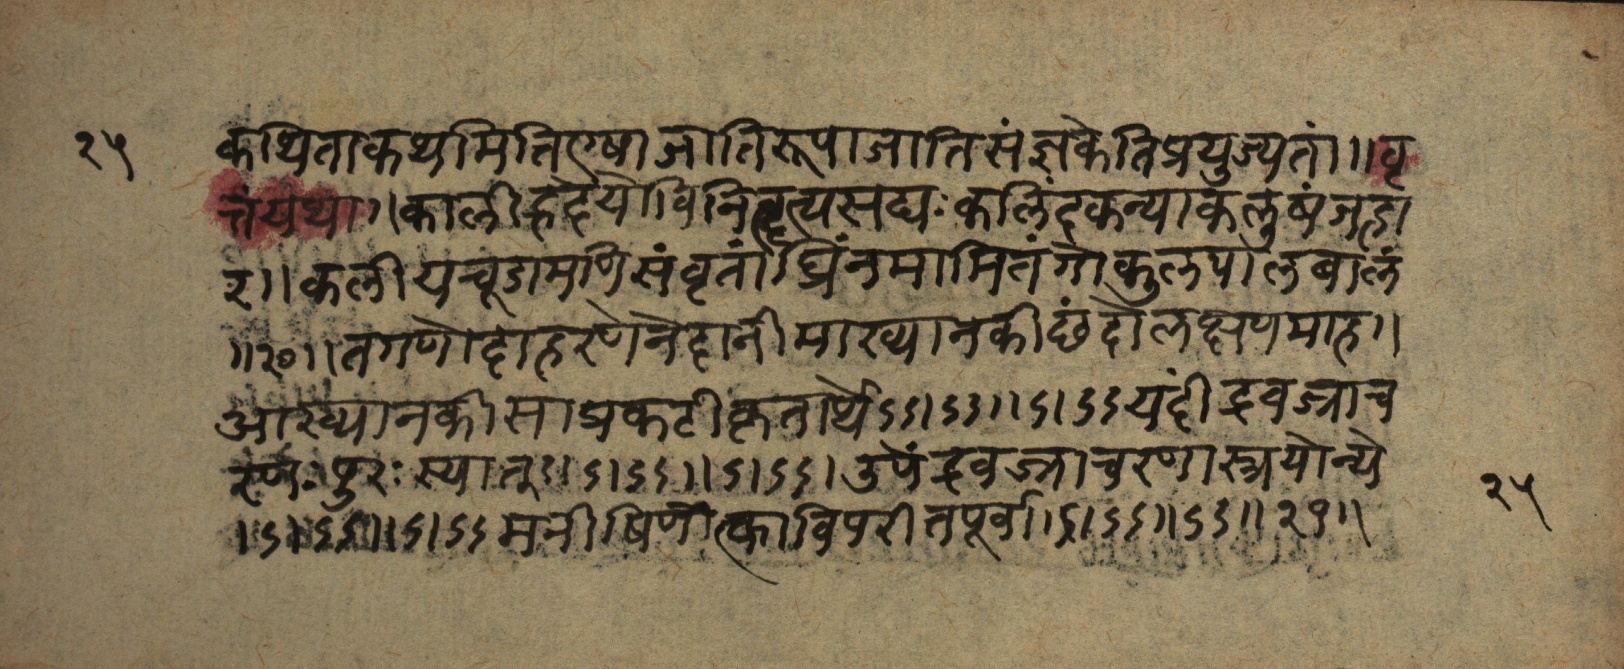 २५ कथिताकथमितिएषाजातिरूपाजातिसंज्ञकेतिप्रयुज्यतां॥वृ
त्तंयथा॥कालीह्रदेयोविनिवृत्यसद्यःकलिंदकन्याकलुषंजहा
र॥कलीयचूडामणिसंवृतांघ्रिंनमामितंगोकुलपालबालं
॥२०॥तगणोदाहरणेनेदानीमाख्यानकीछंदोलक्षणमाह॥
आख्यानकीसाप्रकटीकृतार्थेऽऽ।ऽऽ॥ऽ।ऽऽयदींद्रवज्राच
रणःपुरःस्यात्ऽ।ऽ।ऽऽ॥ऽ।ऽऽ।उपेंद्रवज्राचरणास्त्रयोन्ये
।ऽ।ऽऽ॥ऽ।ऽऽमनीषिणोक्ताविपरीतपूर्वा।ऽ।ऽऽ॥ऽऽ॥२१॥
२५